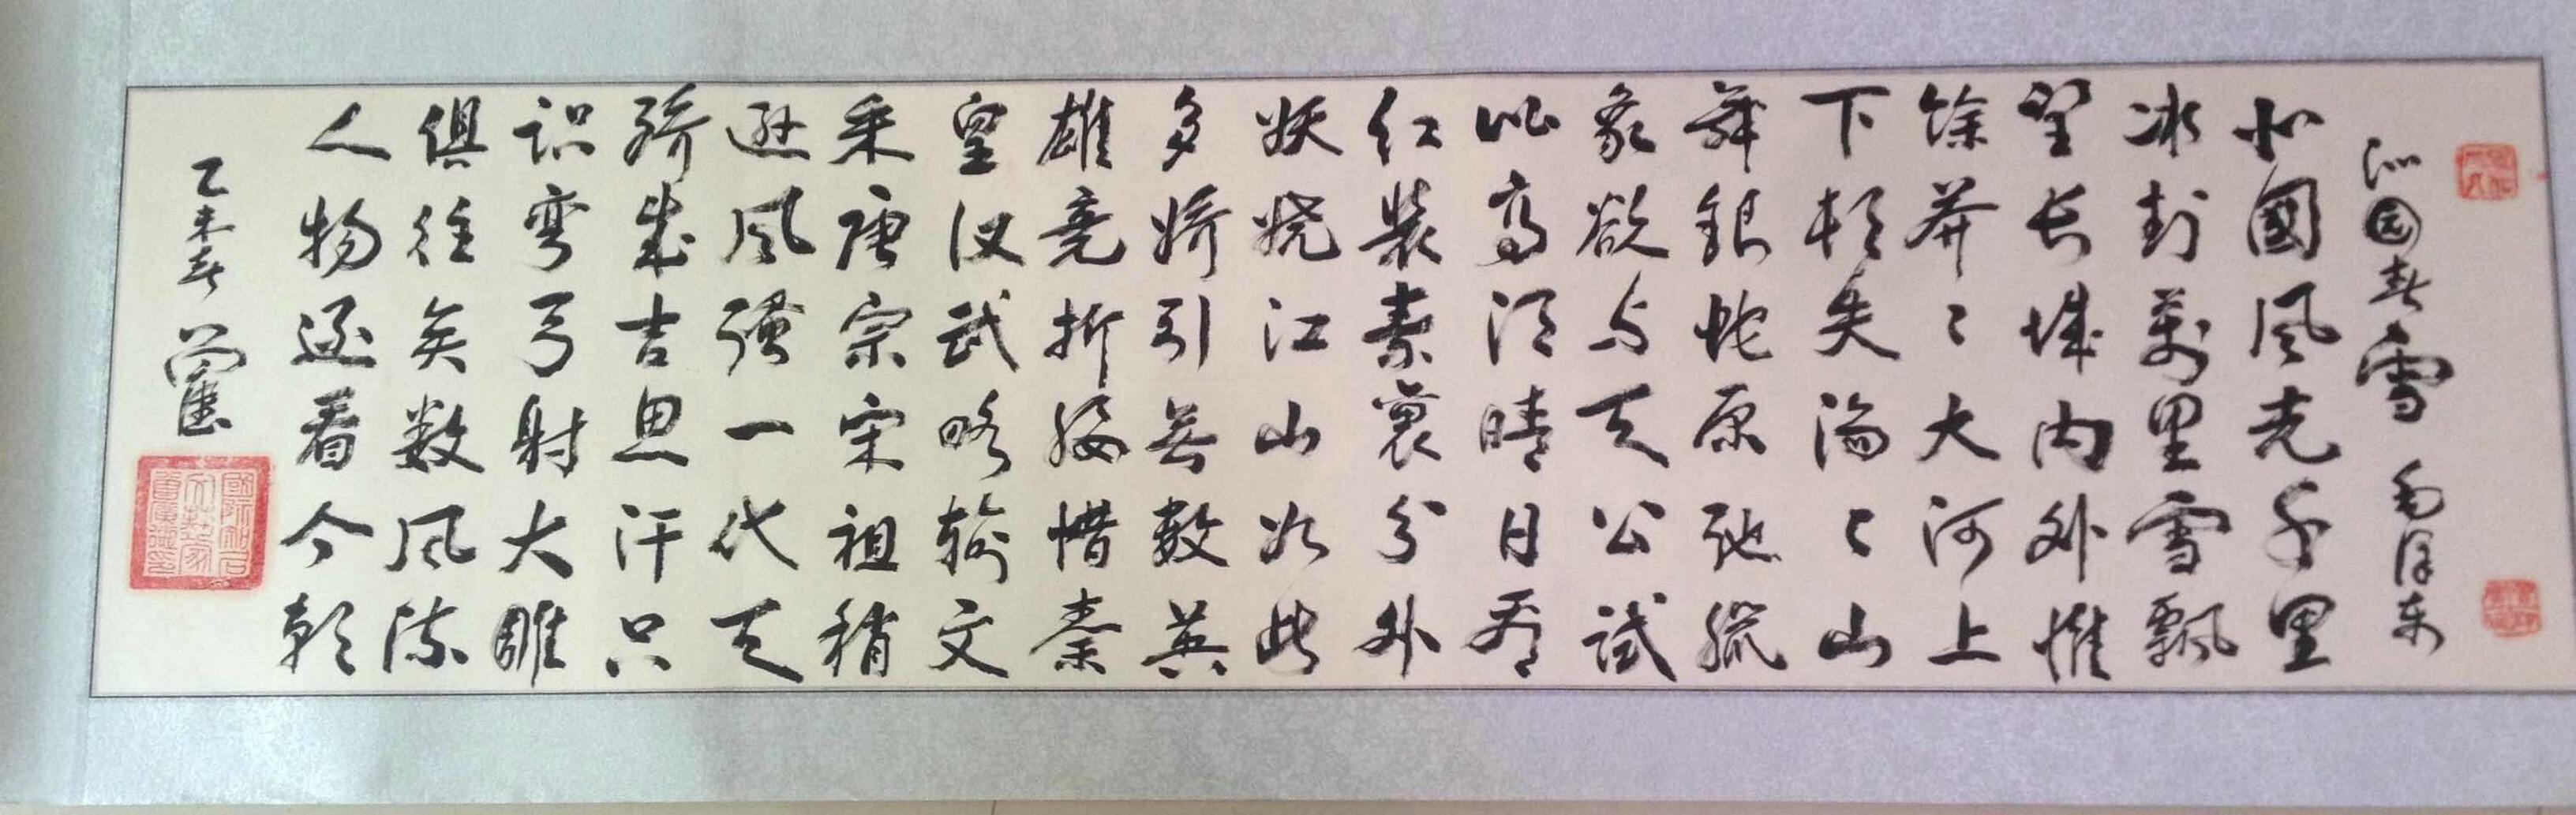 沁园春雪 毛泽东
北國风光千里
冰封萬里雪飘
望长城内外惟
馀莽々大河上
下顿失滔々山
舞銀蛇原驰蜡
象欲与天公試
比高须晴日看
红装素裹分外
妖娆江山如此
多娇引无数英
雄竞折腰惜秦
皇汉武略输文
采唐宗宋祖稍
逊风骚一代天
骄成吉思汗只
识弯弓射大雕
俱往矣数风流
人物还看今朝
乙未春